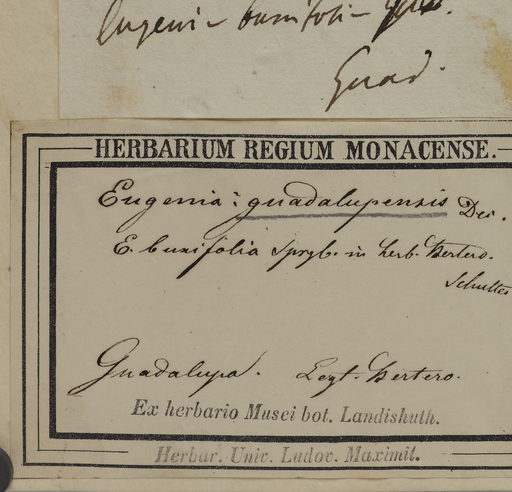 Eugeni- buxifoli-
Guad.
HERBARIUM REGIUM MONACENSE.
Eugenia: guadalupensis Dec.
E. buxifolia Sprgl. in herb. Bertero.
Schultes
Guadalupa. Legt. Bertero.
Ex herbario Musei bot. Landishuth.
Herbar. Univ. Ludov. Maximil.